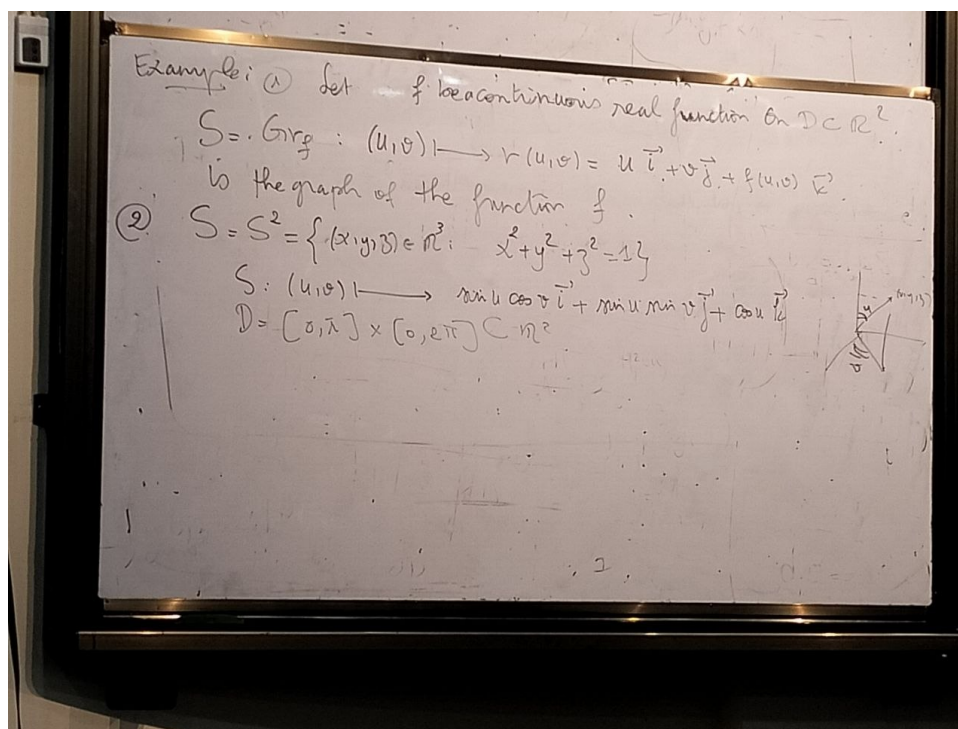 Example: ① Let f be a continuous real function on D ⊂ ℝ².
S = Gr_f : (u,v) ⟼ r(u,v) = u i⃗ + v j⃗ + f(u,v) k⃗
is the graph of the function f.
② S = S² = {(x,y,z) ∈ ℝ³ : x² + y² + z² = 1}
S : (u,v) ⟼ sin u cos v i⃗ + sin u sin v j⃗ + cos u k⃗
D = [0,π] × [0,2π] ⊂ ℝ²